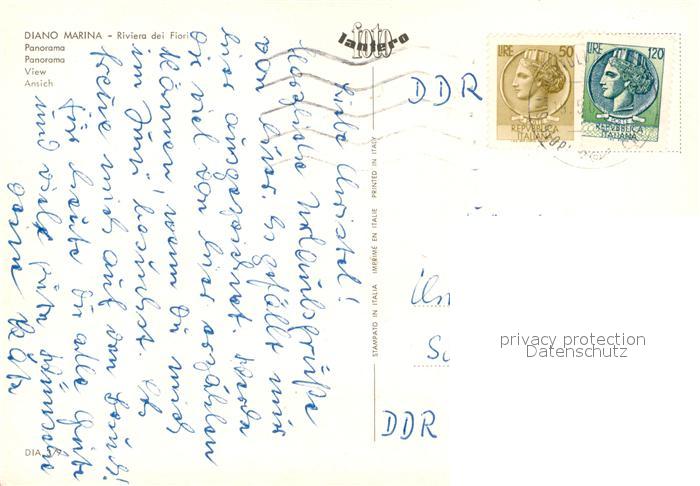 DIANO MARINA - Riviera dei Fiori
Panorama
Panorama
View
Ansich
foto
lantero
LIRE 50
REPUBBLICA
ITALIANA
LIRE 120
REPUBBLICA
ITALIANA
DDR
Liebe Christel!
Herzliche Urlaubsgrüße
von hier. Es gefällt mir
hier ausgezeichnet. Werde
Dir viel von hier erzählen
können, wenn Du mich
im Juni besuchst. Ich
freue mich auf den Besuch!
Für heute Dir alle Gute
und viele liebe
Deine Käte
STAMPATO IN ITALIA IMPRIMÉ EN ITALIE PRINTED IN ITALY
DDR
privacy protection
Datenschutz
DIA